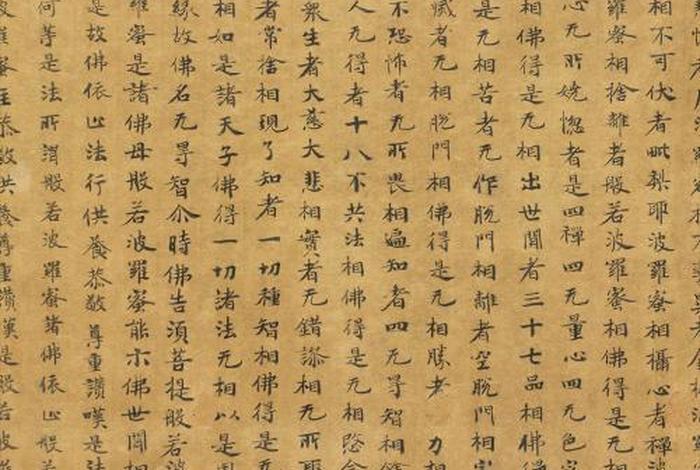 相不可伏者毗梨耶波羅蜜相攝心者禪波
羅蜜相捨離者般若波羅蜜相佛得是无相
心无所嬈惚者是四禪四无量心四无色定
相佛得是无相出世間者三十七品相佛得
是无相苦者无作脫門相離者空脫門相寂
滅者无相脫門相佛得是无相勝者力相
不恐怖者无所畏相遍知者四无㝵智相餘
人无得者十八不共法相佛得是无相愍念
衆生者大慈大悲相實者无錯謬相无所取
者常捨相現了知者一切種智相佛得是无
相如是諸天子佛得一切諸法无相以是因
緣故佛名无㝵智尒時佛告須菩提般若波
羅蜜是諸佛母般若波羅蜜能示佛世間相
是故佛依止法行供養恭敬尊重讚嘆是法
何等是法所謂般若波羅蜜諸佛依止般若
波羅蜜住恭敬供養尊重讚嘆是般若波